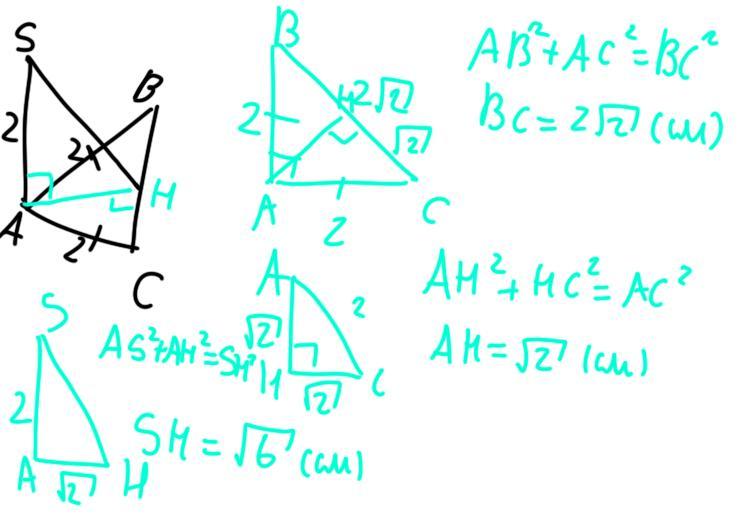 S
B
2
2
H
A
2
C
B
2
H
2√2
√2
A
2
C
AB²+AC²=BC²
BC=2√2 (см)
A
√2
2
H
√2
C
AH²+HC²=AC²
AH=√2 (см)
S
2
A
√2
H
AS²+AH²=SH²
SH=√6 (см)